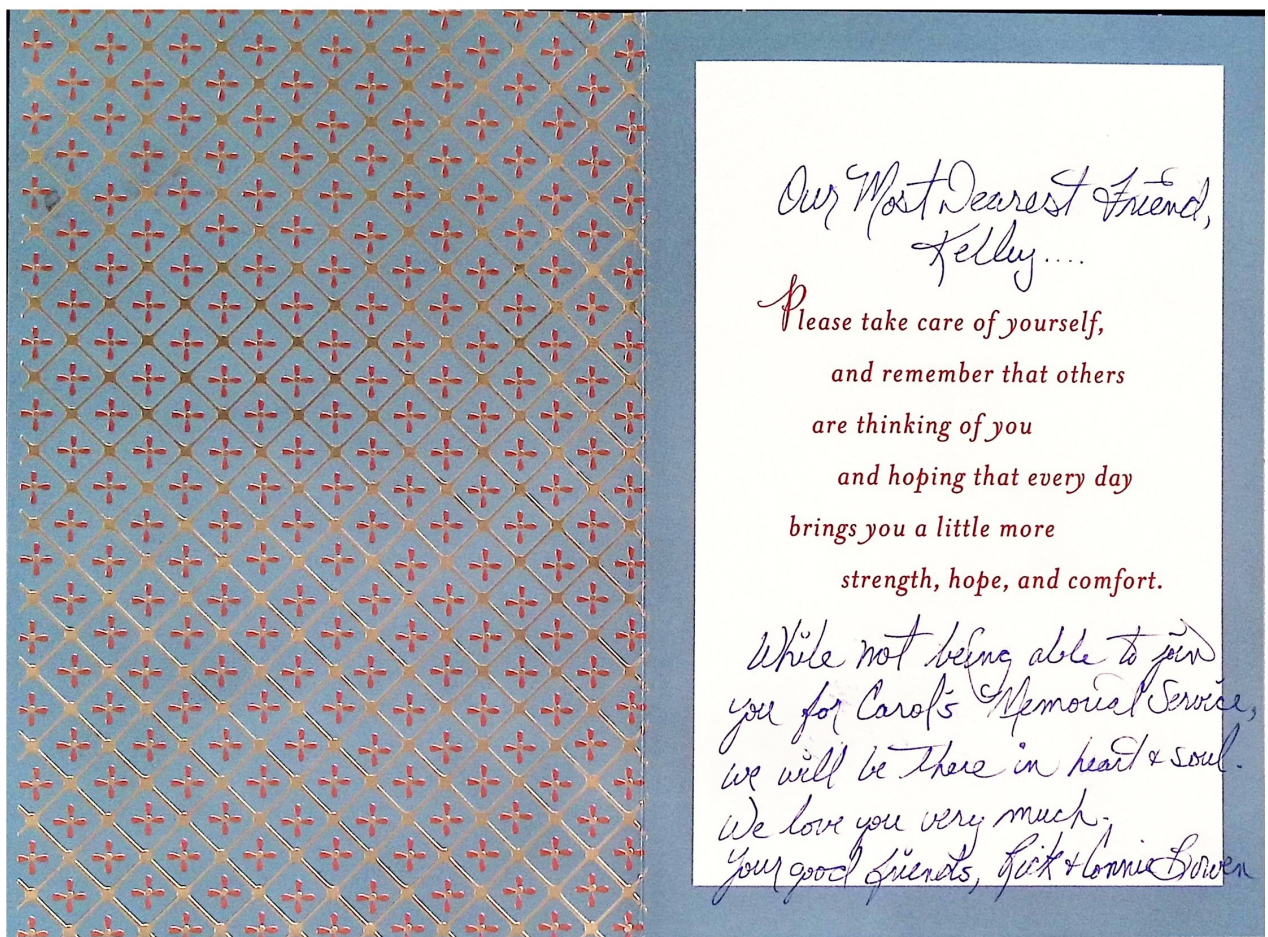 Our Most Dearest Friend,
Kelley....
Please take care of yourself,
and remember that others
are thinking of you
and hoping that every day
brings you a little more
strength, hope, and comfort.
While not being able to join
you for Carol's Memorial Service,
we will be there in heart & soul.
We love you very much.
Your good friends, Rick & Connie Bowen